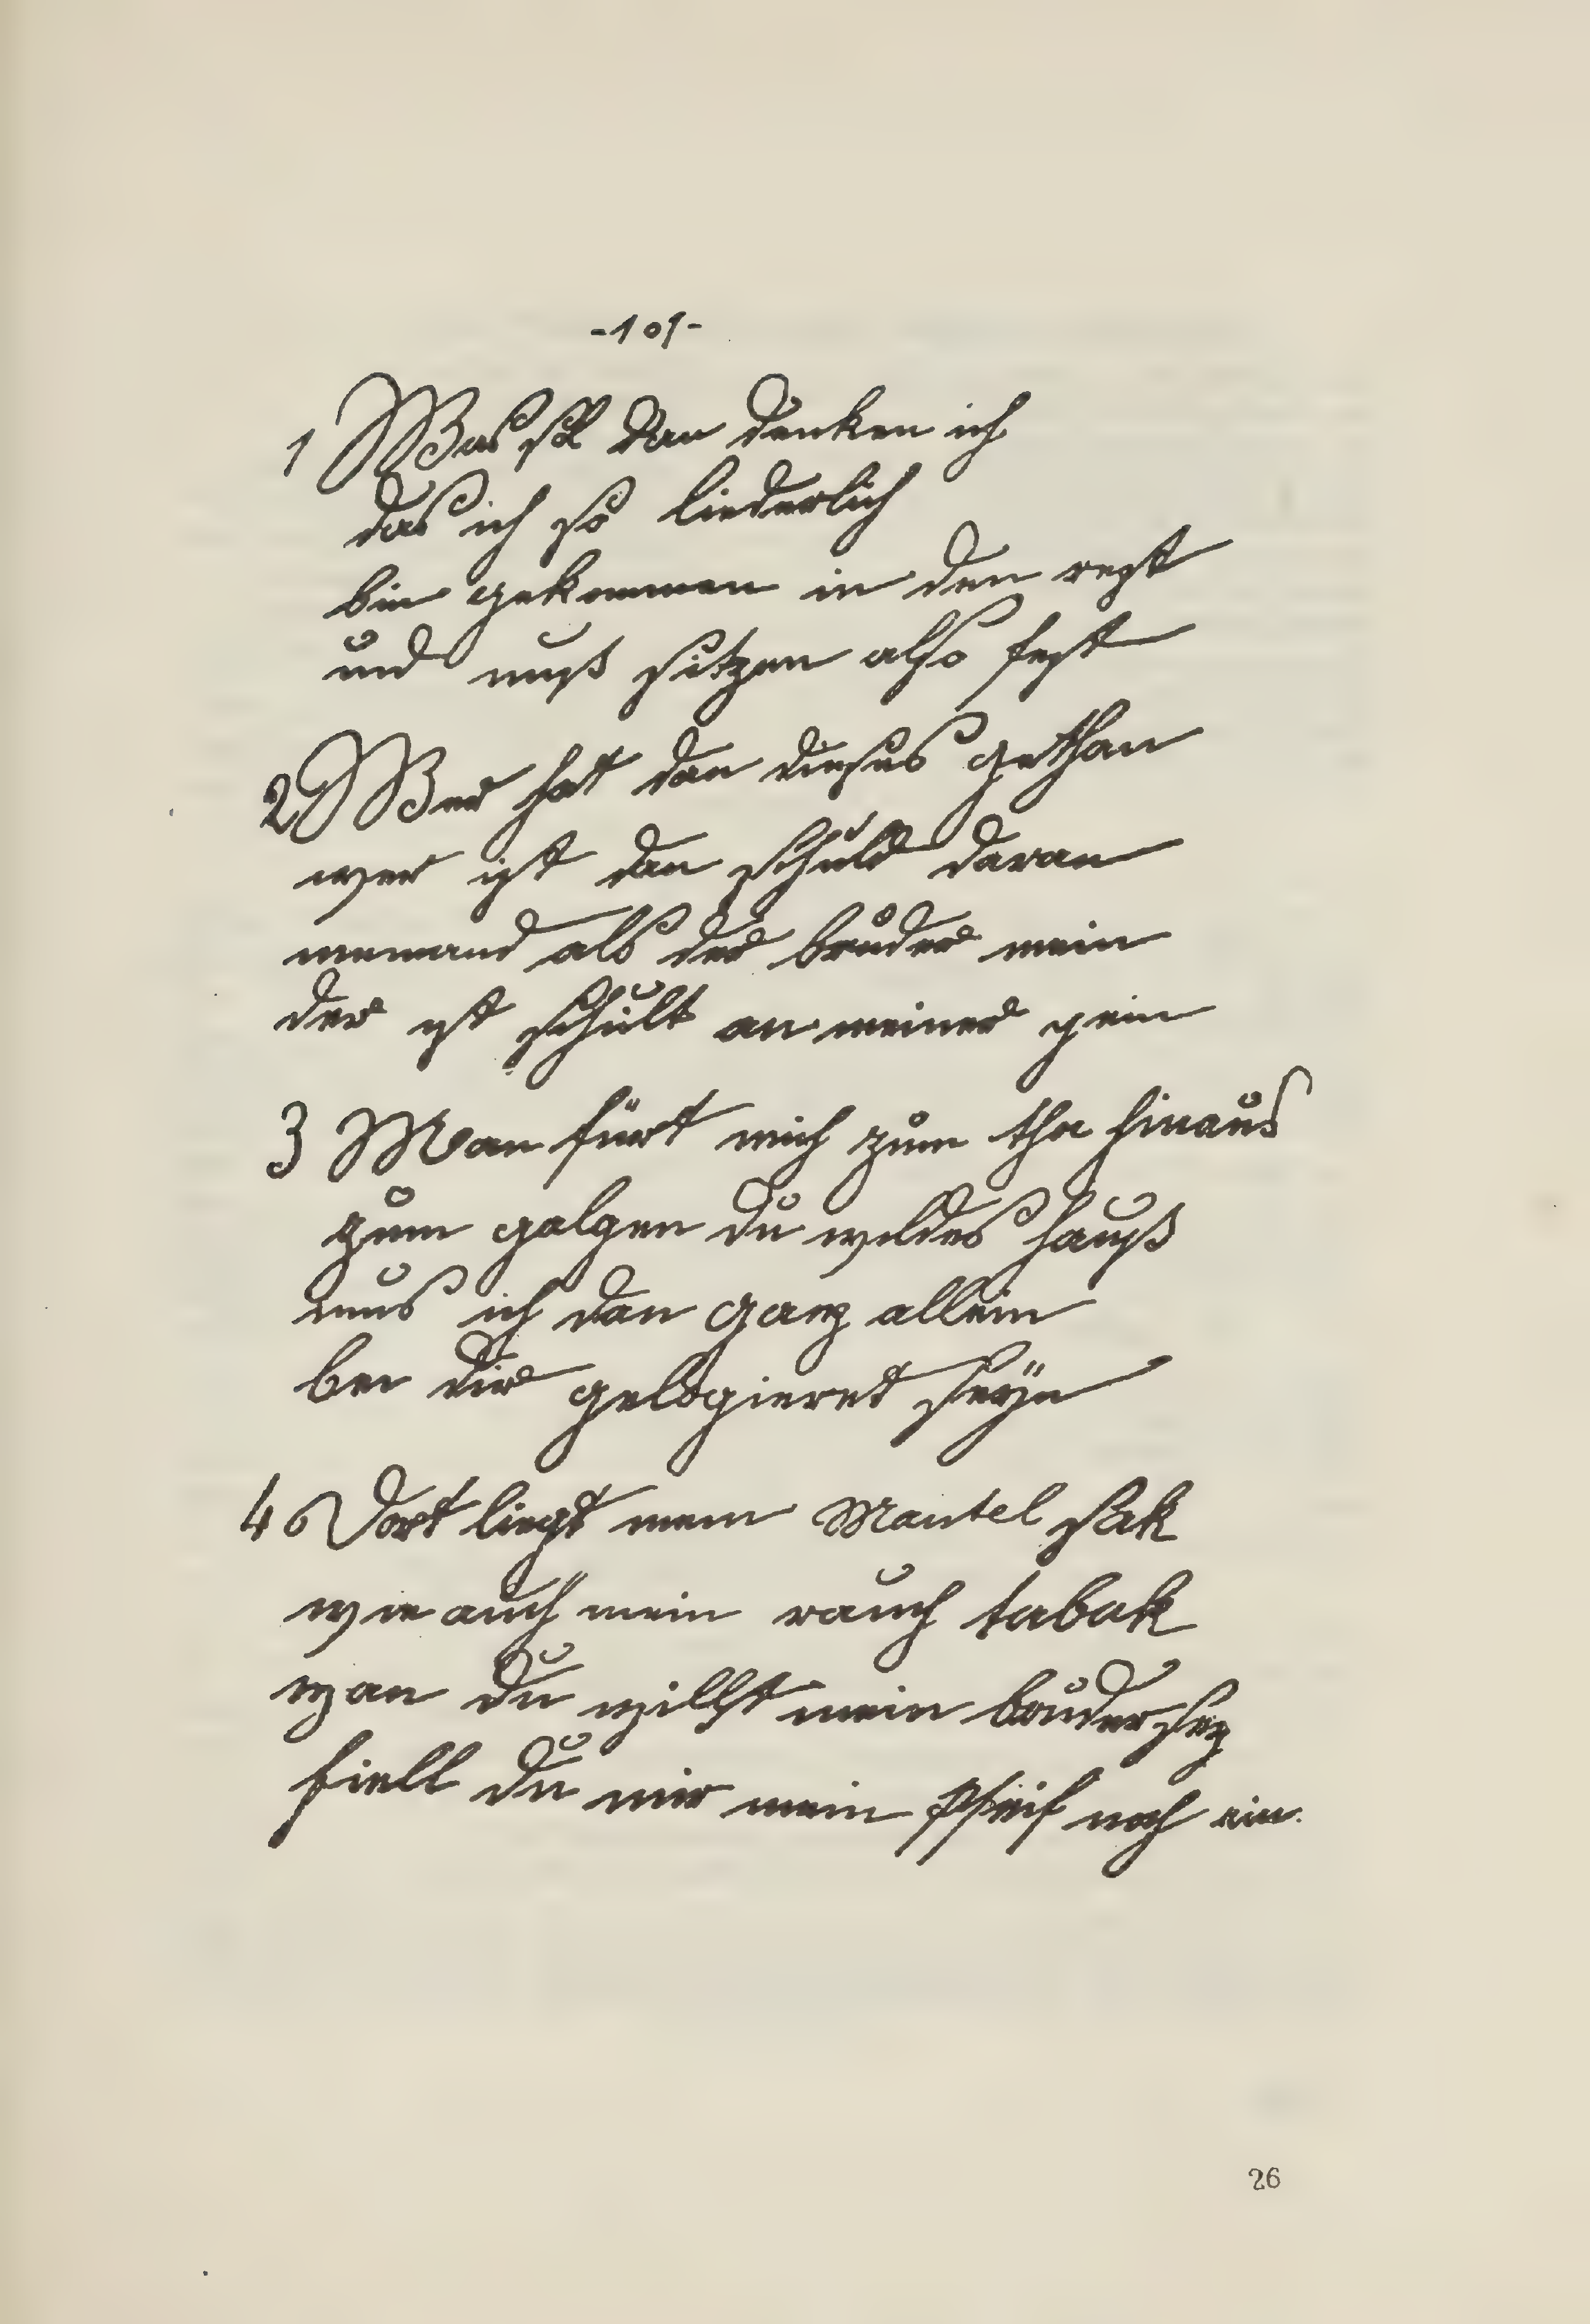 -101-
1 Was sol dan denken ich
das ich so liederlich
bin gekommen in den rest
und muß sitzen also fest
2 Wer hat dan dieses gethan
wer ist dan schuld daran
niemand als der bruder mein
der ist schult an meiner pein
3 Man fürt mich zum thor hinaus
zum galgen du wildes hauß
mus ich dan ganz allein
bei dir gelogieret seÿn
4 Dort liegt mein Mantel sak
wie auch mein rauch tabak
wan du willst mein bruder sey
fiell du mir mein Pfeif noch ein.
26